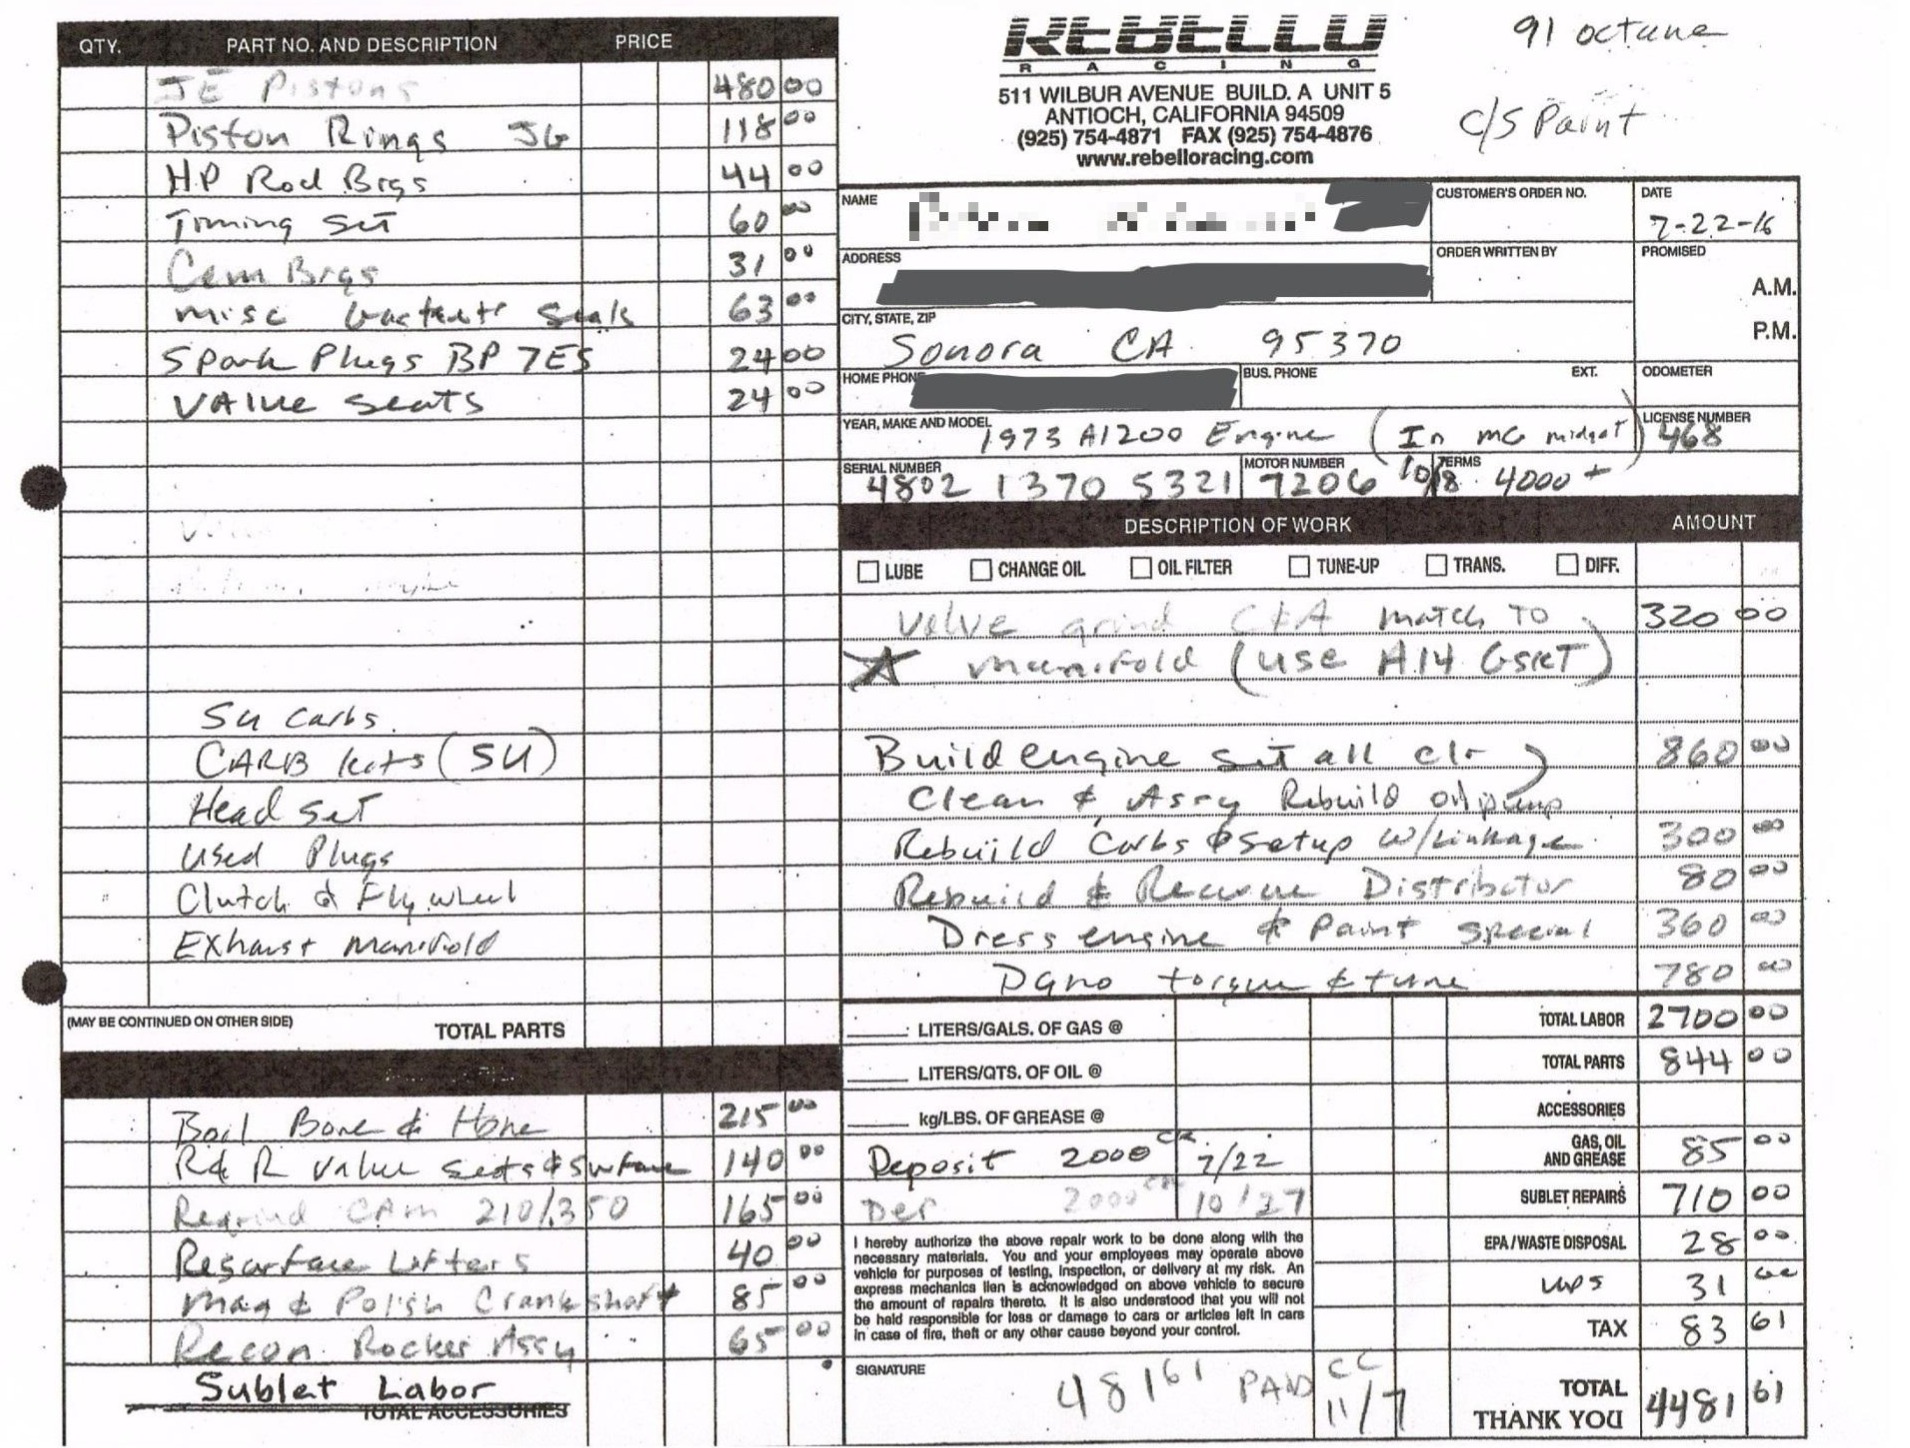 91 octane
C/S Paint
REBELLO
RACING
511 WILBUR AVENUE BUILD. A UNIT 5
ANTIOCH, CALIFORNIA 94509
(925) 754-4871 FAX (925) 754-4876
www.rebelloracing.com
QTY. PART NO. AND DESCRIPTION PRICE
JE Pistons 480 00
Piston Rings JG 118 00
HP Rod Brgs 44 00
Timing Set 60 00
Cam Brgs 31 00
misc Seals 63 00
Spark Plugs BP 7ES 24 00
VAlue Seats 24 00
Su Carbs.
CARB kits (SU)
Head Set
Used Plugs
Clutch & Flywheel
Exhaust Manifold
(MAY BE CONTINUED ON OTHER SIDE) TOTAL PARTS
Boil Bore & Hone 215 00
R & R Value Seats & Surface 140 00
Regrind CAm 210/.350 165 00
Resurface Lifters 40 00
Mag & Polish Crankshaft 85 00
Recon. Rocker Assy 65 00
Sublet Labor
TOTAL ACCESSORIES
NAME
CUSTOMER'S ORDER NO.
DATE 7-22-16
ADDRESS
ORDER WRITTEN BY
PROMISED
A.M.
P.M.
CITY, STATE, ZIP Sonora CA 95370
HOME PHONE BUS. PHONE EXT. ODOMETER
YEAR, MAKE AND MODEL 1973 A1200 Engine (In MG midget) LICENSE NUMBER 468
SERIAL NUMBER 4802 1370 5321 MOTOR NUMBER 7206 10/8 TERMS 4000 +
DESCRIPTION OF WORK AMOUNT
LUBE CHANGE OIL OIL FILTER TUNE-UP TRANS. DIFF.
Valve grind C+A match TO 320 00
manifold (use A14 GSKT)
Build engine set all clr 860 00
Clean & Assy Rebuild oil pump
Rebuild Carbs & setup w/Linkage 300 00
Rebuild & Recurve Distributor 80 00
Dress engine & Paint special 360 00
Dyno torque & tune 780 00
LITERS/GALS. OF GAS @ TOTAL LABOR 2700 00
LITERS/QTS. OF OIL @ TOTAL PARTS 844 00
kg/LBS. OF GREASE @ ACCESSORIES
Deposit 2000 CK 7/22 GAS, OIL AND GREASE 85 00
Dep 2000 CK 10/27 SUBLET REPAIRS 710 00
I hereby authorize the above repair work to be done along with the
necessary materials. You and your employees may operate above
vehicle for purposes of testing, inspection, or delivery at my risk. An
express mechanics lien is acknowledged on above vehicle to secure
the amount of repairs thereto. It is also understood that you will not
be held responsible for loss or damage to cars or articles left in cars
in case of fire, theft or any other cause beyond your control.
EPA / WASTE DISPOSAL 28 00
UPS 31 00
TAX 83 61
SIGNATURE 481 61 PAID CC 11/7
TOTAL
THANK YOU 4481 61